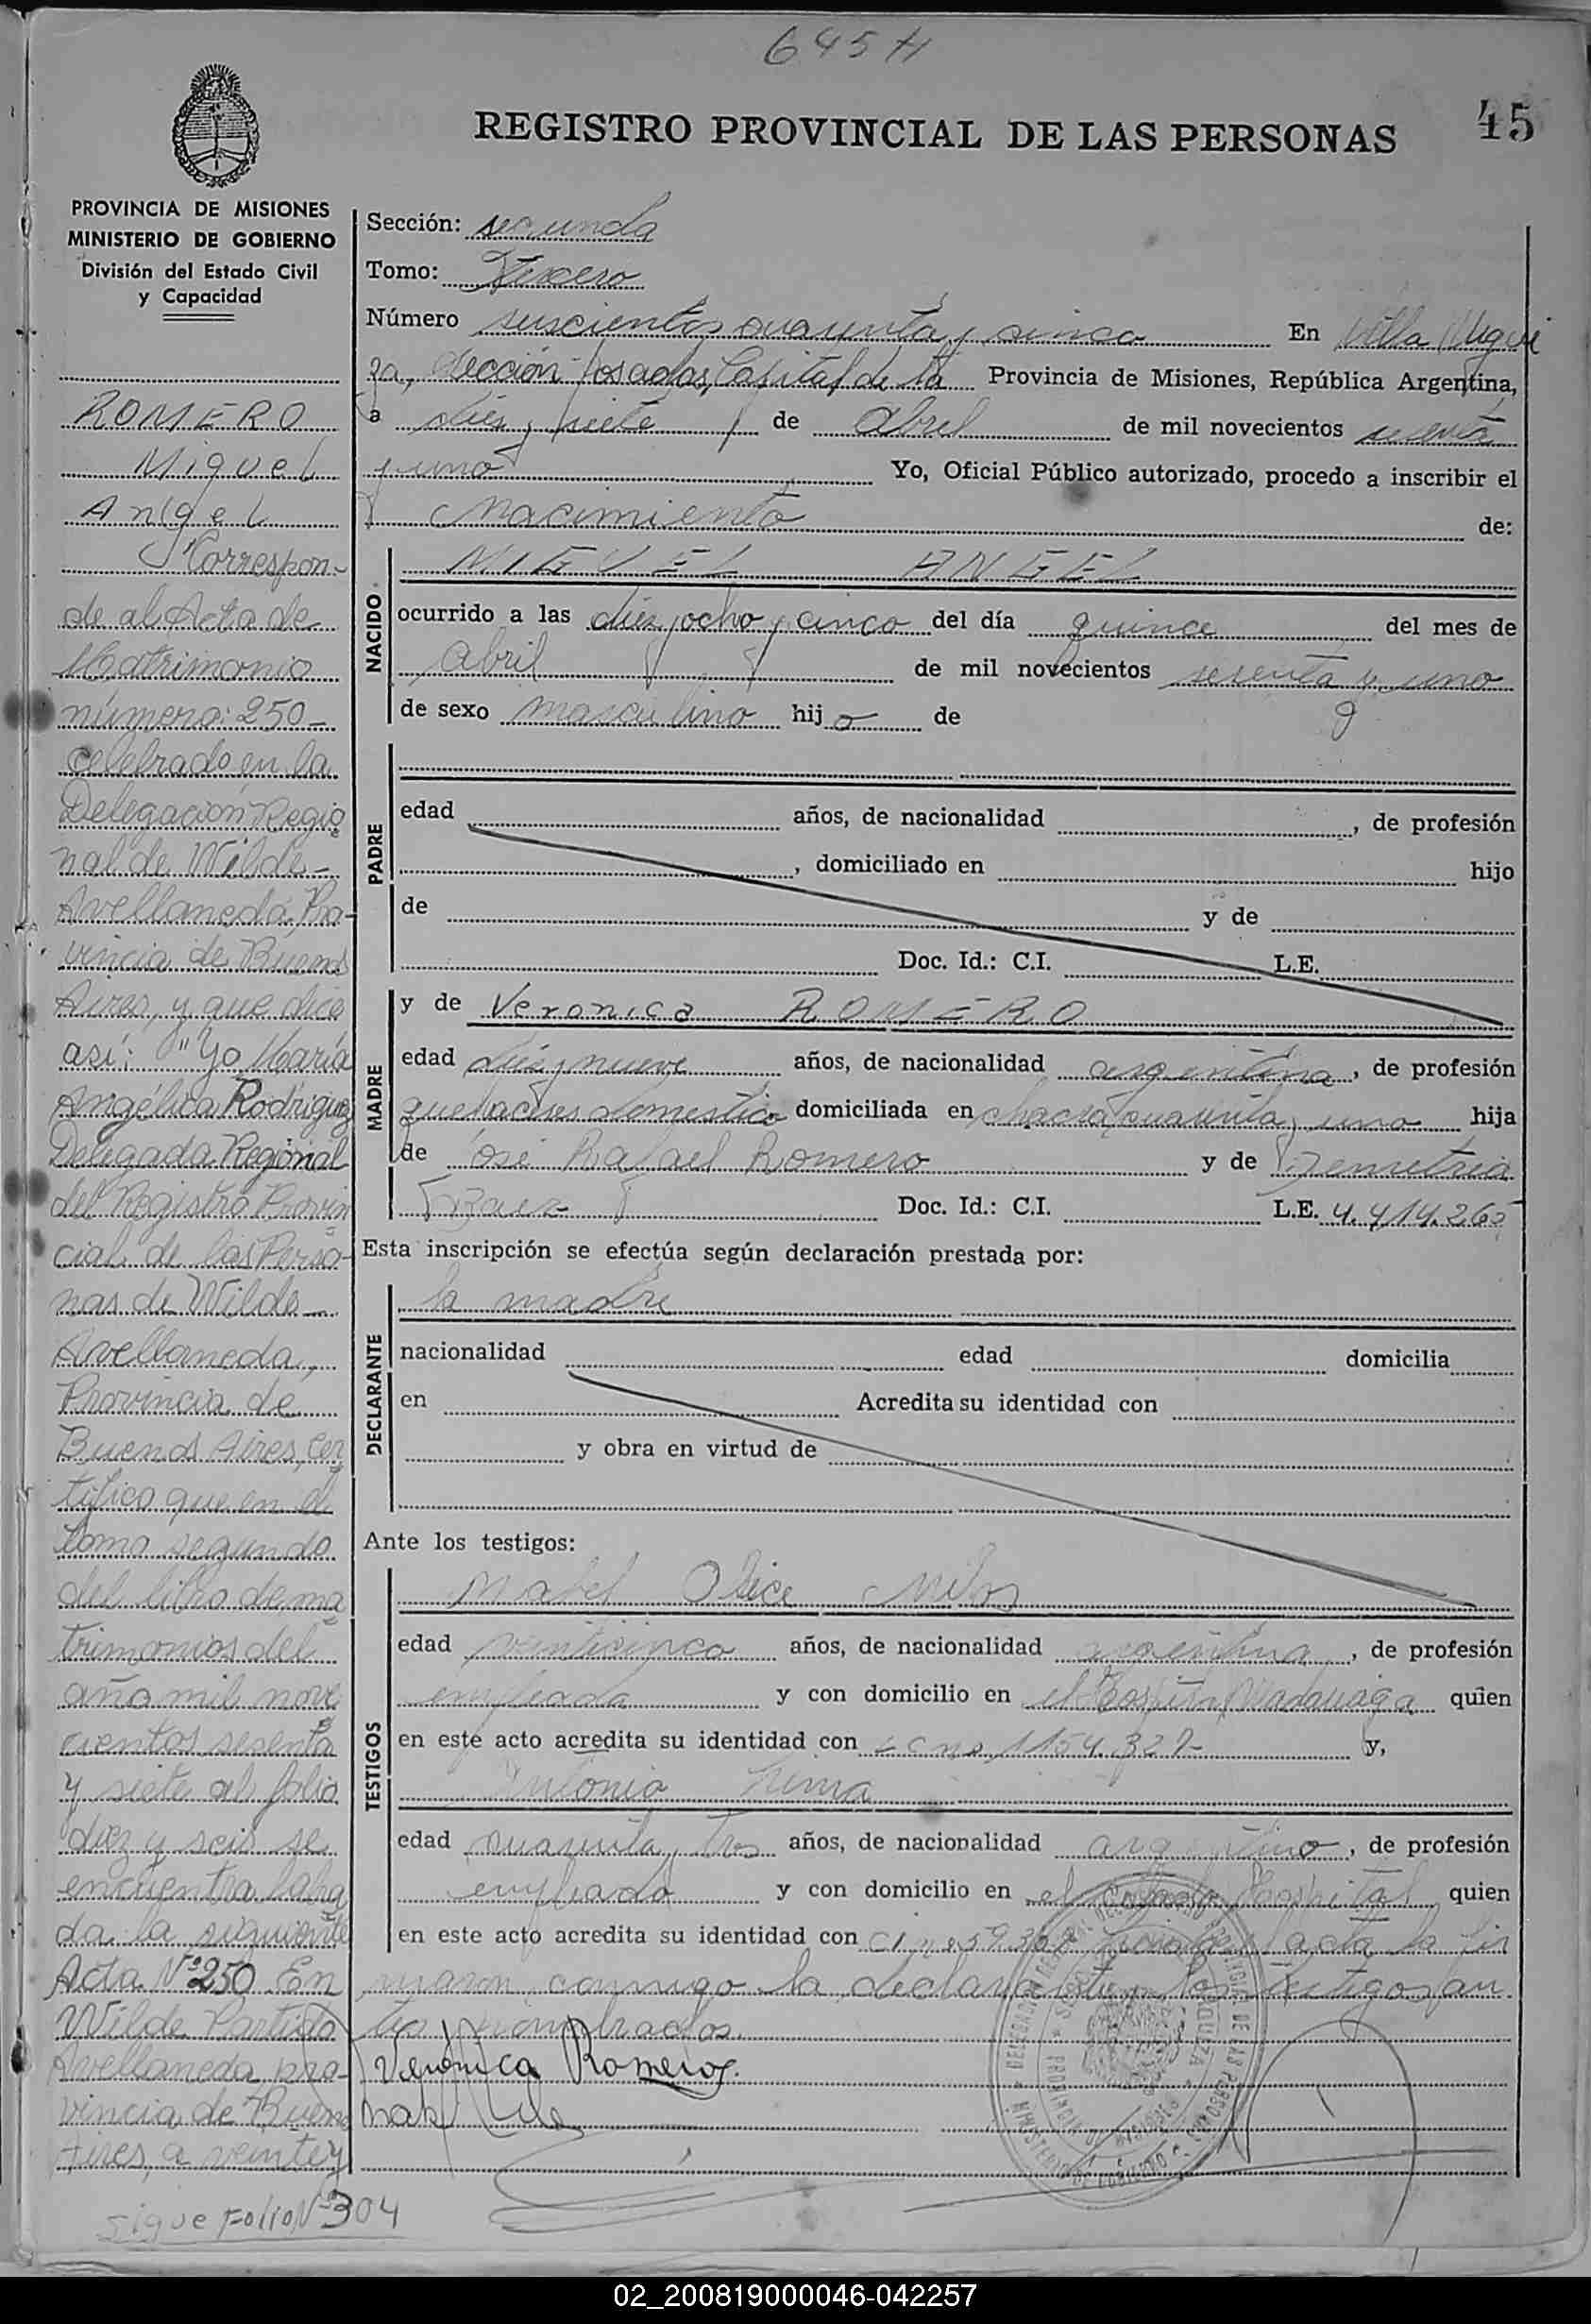 645 H
45
REGISTRO PROVINCIAL DE LAS PERSONAS
PROVINCIA DE MISIONES
MINISTERIO DE GOBIERNO
División del Estado Civil
y Capacidad
ROMERO
Miguel
Angel
Correspon-
de al Acta de
Matrimonio
número: 250-
celebrado en la
Delegación Regio
nal de Wilde-
Avellaneda Pro-
vincia de Buenos
Aires, y que dice
así: "Yo María
Angélica Rodriguez
Delegada Regional
del Registro Provin
cial de las Perso-
nas de Wilde
Avellaneda,
Provincia de
Buenos Aires, Cer
tifico que en el
tomo segundo
del libro de ma
trimonios del
año mil nove
cientos sesenta
y siete al folio
diez y seis se
encuentra labra
da la siguiente
Acta Nº 250 En
Wilde Partido
Avellaneda pro-
vincia de Buenos
Aires, a veinte y
sigue Folio Nº 304
Sección: segunda
Tomo: Tercero
Número seiscientos cuarenta y cinco En Villa Urqui
za, Sección Posadas, Capital de la Provincia de Misiones, República Argentina,
a diez y siete de Abril de mil novecientos sesenta
y uno Yo, Oficial Público autorizado, procedo a inscribir el
Nacimiento de:
NACIDO
MIGUEL ANGEL
ocurrido a las diez y ocho y cinco del día quince del mes de
Abril de mil novecientos sesenta y uno
de sexo masculino hijo de
PADRE
edad años, de nacionalidad , de profesión
, domiciliado en hijo
de y de
Doc. Id.: C.I. L.E.
MADRE
y de Veronica ROMERO
edad diez y nueve años, de nacionalidad argentina, de profesión
quehaceres domestico domiciliada en chacra cuarenta y uno hija
de José Rafael Romero y de Demetria
Baez Doc. Id.: C.I. L.E. 4.414.26
Esta inscripción se efectúa según declaración prestada por:
DECLARANTE
la madre
nacionalidad edad domicilia
en Acredita su identidad con
y obra en virtud de
Ante los testigos:
TESTIGOS
Mabel Olice
edad veinticinco años, de nacionalidad argentina, de profesión
empleada y con domicilio en el Hospital Madariaga quien
en este acto acredita su identidad con L C no 1154.327 y,
Antonio
edad cuarenta y tres años, de nacionalidad argentino, de profesión
empleado y con domicilio en el citado Hospital quien
en este acto acredita su identidad con C I no 59.369 acta la fir
maron conmigo la declarante y los testigos an
tes nombrados.
Veronica Romero
Mabel
02_200819000046-042257